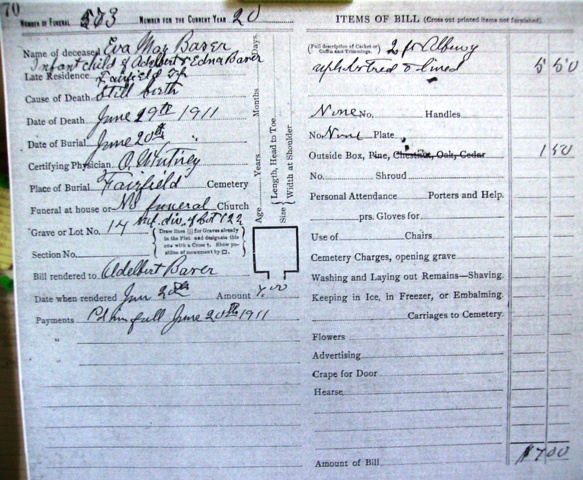 70
NUMBER OF FUNERAL 573 NUMBER FOR THE CURRENT YEAR 20
Name of deceased Eva May Baver
Infant child of Adelbert & Edna Baver
Late Residence Fairfield Tp
Cause of Death Still birth
Date of Death June 19th 1911
Date of Burial June 20th "
Certifying Physician O. Whitney
Place of Burial Fairfield Cemetery
Funeral at house or No funeral Church
Grave or Lot No. 14 div. of Lot 122
(Draw lines for Graves already in the Plot and designate this one with a Cross †. Show position of monument by □.)
Section No.
Bill rendered to Adelbert Baver
Date when rendered Jun 20th Amount 7.00
Payments Pd in full June 20th 1911
"
"
Age Years Months Days.
Size { Length, Head to Toe. Width at Shoulder
ITEMS OF BILL (Cross out printed items not furnished.)
(Full description of Casket or Coffin and Trimmings. 2 ft
upholstred & lined 5 50
None No. Handles
No. None Plate
Outside Box, Pine, Chestnut, Oak, Cedar 1 50
No. Shroud
Personal Attendance Porters and Help.
prs. Gloves for
Use of Chairs
Cemetery Charges, opening grave
Washing and Laying out Remains—Shaving.
Keeping in Ice, in Freezer, or Embalming.
Carriages to Cemetery.
Flowers
Advertising
Crape for Door
Hearse
Amount of Bill $7 00